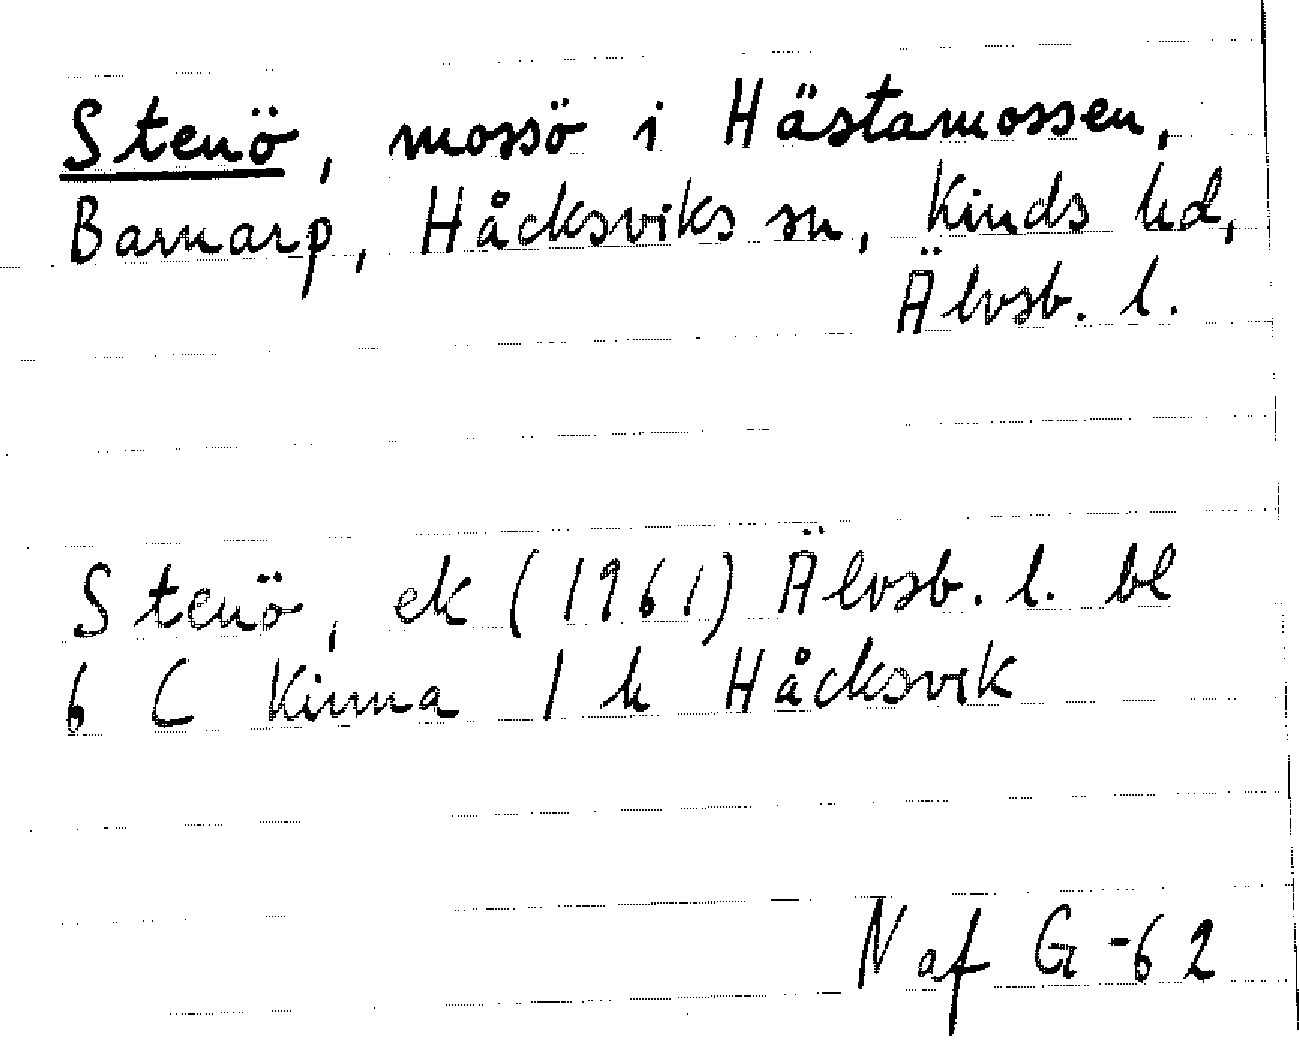 Stenö, mossö i Hästamossen,
Barnarp, Håcksviks sn, Kinds hd,
Älvsb. l.
Stenö, ek (1961) Älvsb. l. bl
6 C Kinna 1 h Håcksvik
N af G -62